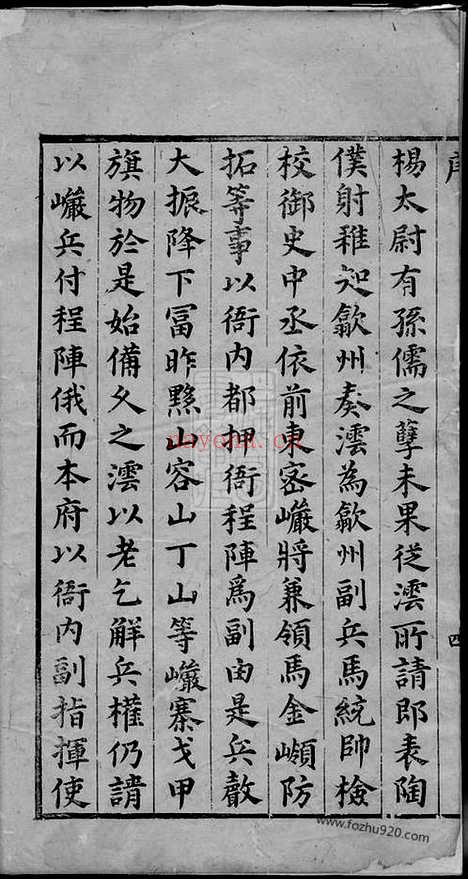 楊太尉有孫儒之孽未果從澐所請郎表陶
僕射雅知歙州奏澐為歙州副兵馬統帥檢
校御史中丞依前東密巗將兼領馬金嶺防
拓等事以衙内都押衙程陣爲副由是兵聲
大振降下冨昨黟山容山丁山等巗寨戈甲
旗物於是始備久之澐以老乞解兵權仍請
以巗兵付程陣俄而本府以衙内副指揮使
四
nayona.cn
www.fozhu920.com